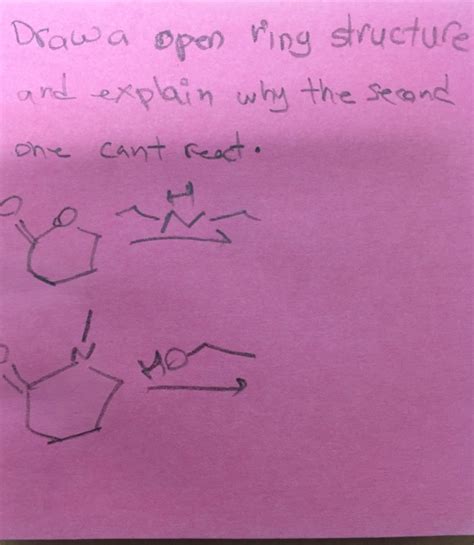 Draw a open ring structure
and explain why the second
one cant react.
O
O
H
N
O
N
HO